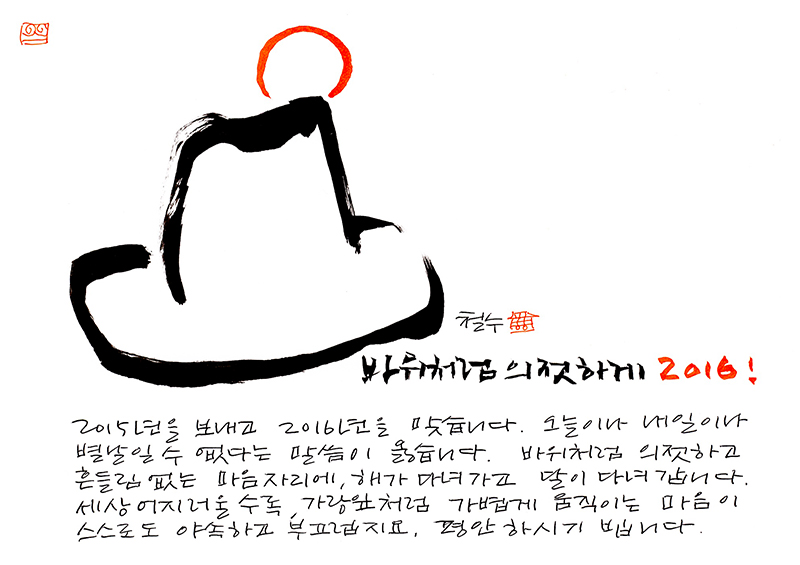 철수
바위처럼 의젓하게 2016!
2015년을 보내고 2016년을 맞습니다. 오늘이나 내일이나
별날일 수 없다는 말씀이 옳습니다. 바위처럼 의젓하고
흔들림 없는 마음자리에, 해가 다녀가고 달이 다녀갑니다.
세상 어지러울수록, 가랑잎처럼 가볍게 움직이는 마음이
스스로도 야속하고 부끄럽지요. 평안하시기 빕니다.